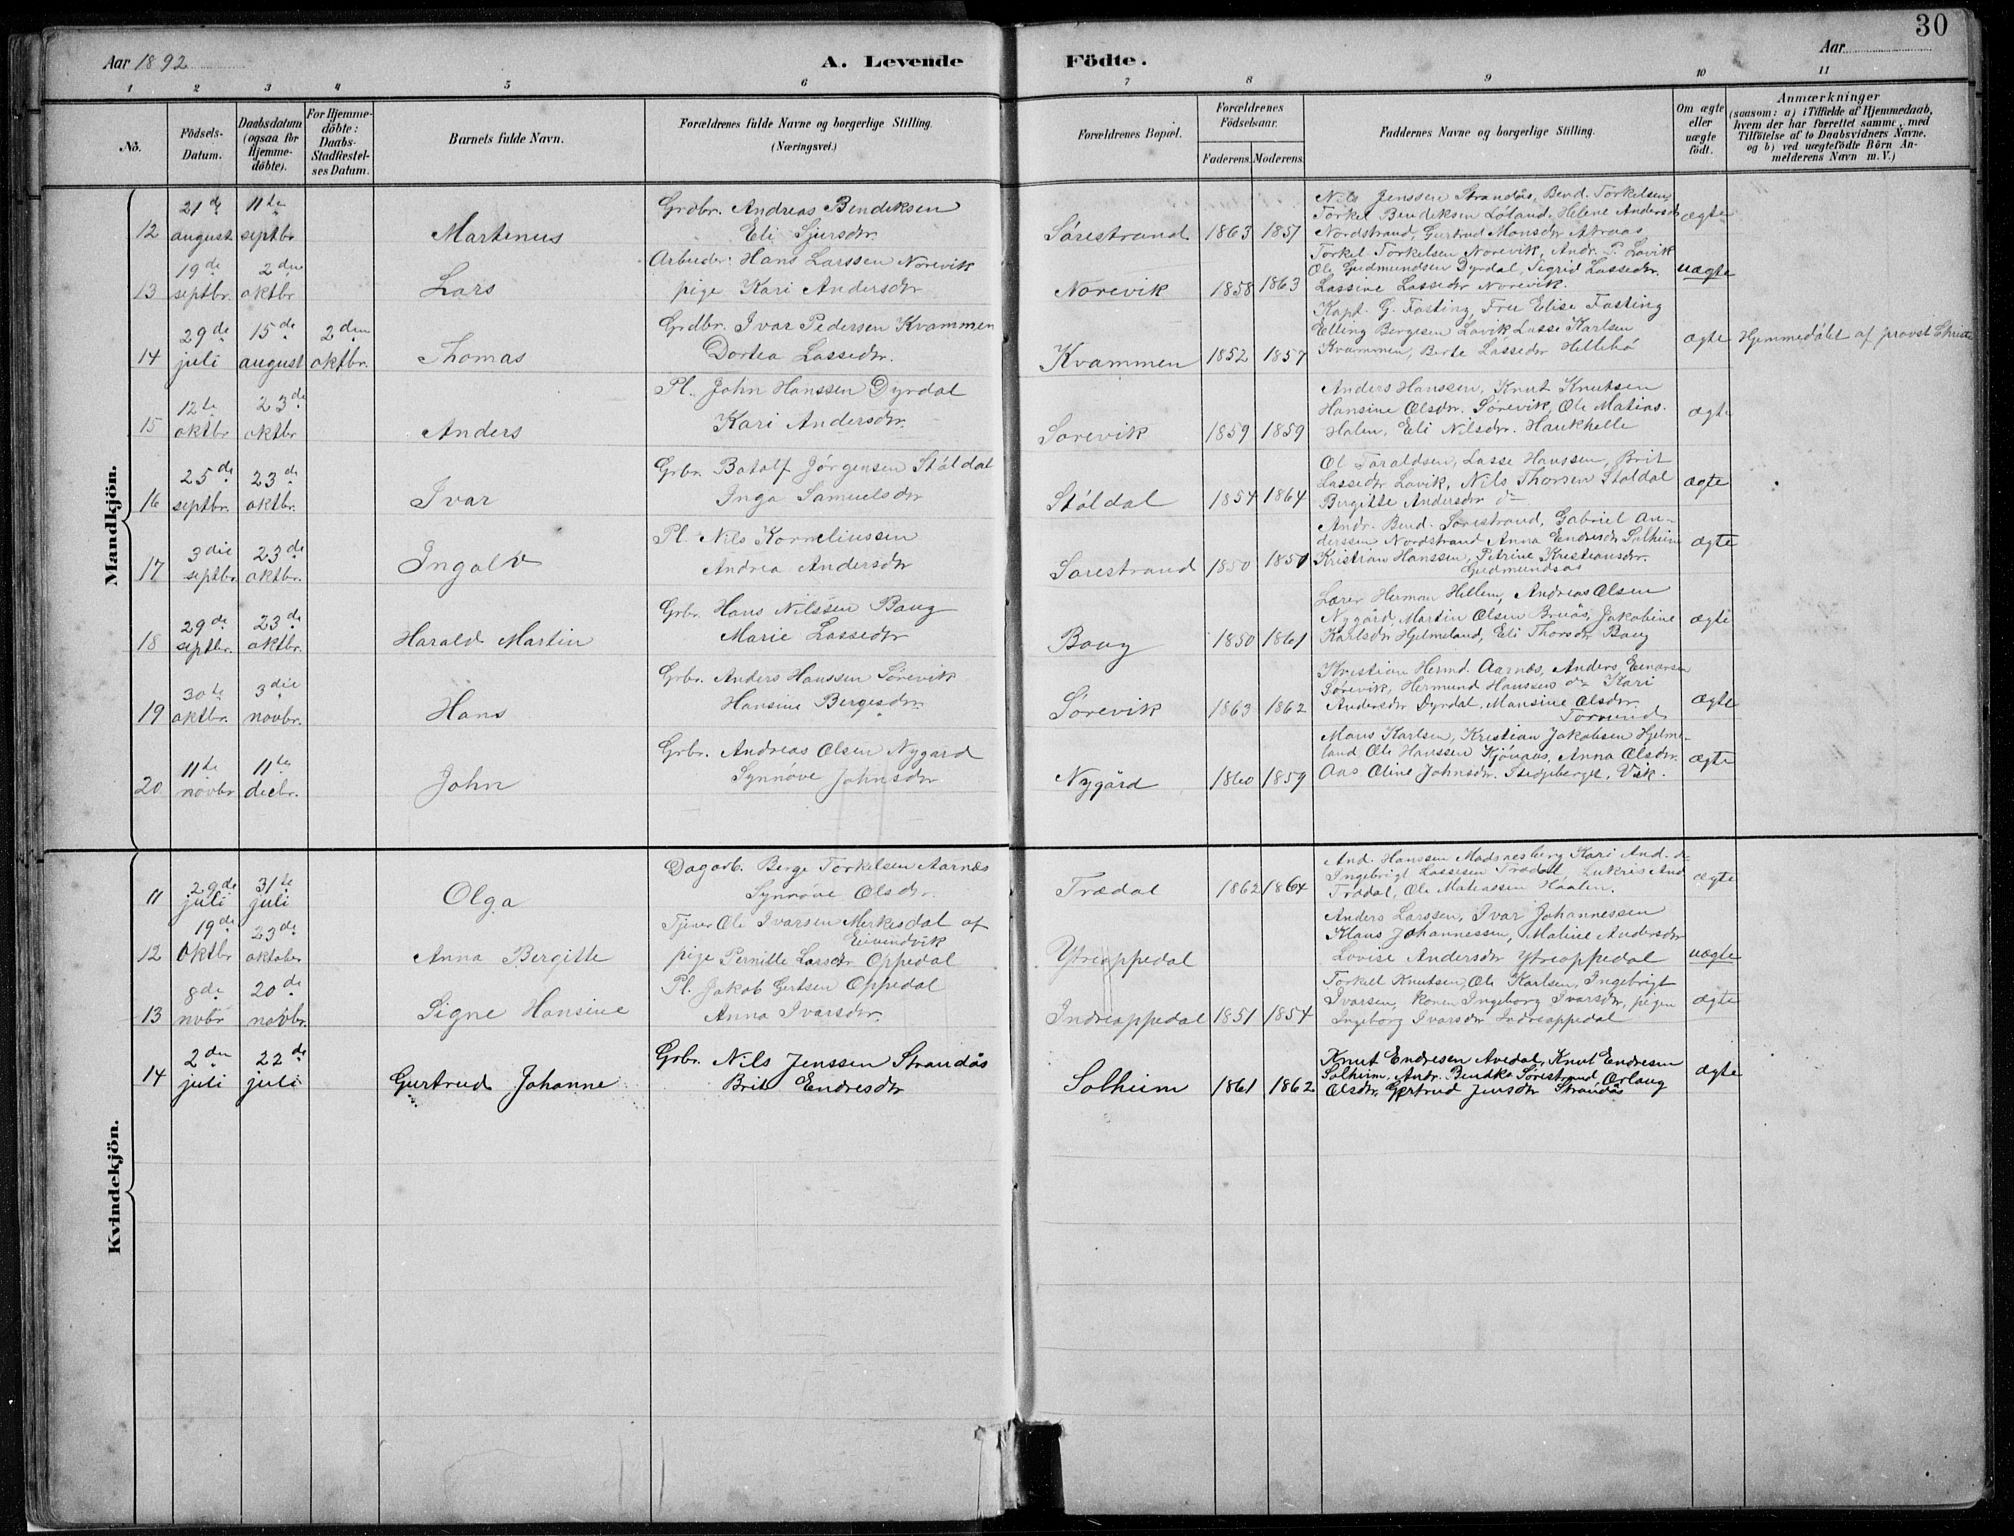 30
Aar 1892
A. Levende
Födte.
Aar
1 2 3 4 5 6 7 8 9 10 11
No.
Födsels-
Datum.
Daabsdatum
(ogsaa for
Hjemme-
döbte).
For Hjemme-
döbte:
Daabs-
Stadfæstel-
ses Datum.
Barnets fulde Navn.
Forældrenes fulde Navne og borgerlige Stilling.
(Næringsvei.)
Forældrenes Bopæl.
Forældrenes
Födselsaar.
Faderens. Moderens.
Faddernes Navne og borgerlige Stilling.
Om ægte
eller
uægte
födt.
Anmærkninger
(saasom: a) i Tilfælde af Hjemmedaab,
hvem der har forrettet samme, med
Tilföielse af to Daabsvidners Navne,
og b) ved uægtefödte Börn An-
melderens Navn m. V.)
Mandkjön.
12 21de august 11te septbr. Martinus
Grdbr. Andreas Bendiksen
Eli Sjursdr.
Sørestrand 1863 1851
Nils Jenssen Strandås, Bend. Torkelsen
Torkel Bendiksen Løland, Helene Andersdr
Nordstrand, Gertrud Monsdr
ægte
13 19de septbr. 2den oktbr. Lars
Arbeider Hans Larssen Norevik
pige Kari Andersdr
Norevik 1858 1863
Torkel Torkelsen Norevik, Andr. P. Lavik
Ole Gudmundsen Dyrdal, Sigrid Lassedr.
Lassine Lassedr Norevik.
uægte
14 29de juli 15de august 2den oktbr. Thomas
Grdbr. Ivar Pedersen Kvammen
Dortea Lassedr.
Kvammen 1852 1857
Kapt. G. Fasting, Fru Elise Fasting
Elling Bergesen Lavik Lasse Karlsen
Kvammen, Berte Lassedr Hillebø
ægte
Hjemmedøbt af provst Christie
15 12te oktbr 23de oktbr Anders
Pl. John Hanssen Dyrdal
Kari Andersdr.
Sørevik 1859 1859
Anders Hanssen, Knut Knutsen
Hansine Olsdr. Sørevik, Ole Matias.
Halen, Eli Nilsdr. Haukhelle
ægte
16 25de septbr. 23de oktbr. Ivar
Grbr. Botolf Jørgensen Støldal
Inga Samuelsdr
Støldal 1854 1864
Ol Taraldsen, Lasse Hanssen, Brit
Lassedr Lavik, Nils Thorsen Støldal
Birgitte Andersdr do
ægte
17 3die septbr 23de oktbr. Ingolv
Pl. Nils Korneliussen
Andrea Andersdr
Sørestrand 1850 1851
Andr. Bend. Sørestrand, Gabriel An-
derssen Nordstrand Anna Endresdr Solheim
Kristian Hanssen, Petrine Kristiansdr.
Gudmundsås
ægte
18 29de septbr. 23de oktbr. Harald Martin
Grbr. Hans Nilssen Baug
Marie Lassedr
Baug 1850 1861
Lærer Herman Hillem, Andreas Olsen
Nygård, Martin Olsen Bruås, Jakobine
Karlsdr Hjelmeland, Eli Thorsdr Baug
ægte
19 30te oktbr. 3die novbr. Hans
Grbr. Anders Hanssen Sørevik
Hansine Bergesdr.
Sørevik 1863 1862
Kristian Hermd. Aarnæs, Anders Einarsen
Sørevik, Hermund Hanssen do Kari
Andersdr Dyrdal, Mansine Olsdr.
ægte
20 11te novbr 11te decbr. John
Grbr. Andreas Olsen Nygård
Synnøve Johnsdr
Nygård 1860 1859
Mons Karlsen, Kristian Jakobsen Hjelme-
land Ole Hanssen Anna Olsdr.
Aas Oline Johnsdr. Stedjeberget, Vik.
ægte
Kvindekjön.
11 29de juli 31te juli Olga
Dagarb. Berge Torkelsen Aarnæs
Synnøve Olsdr.
Trædal 1862 1864
And. Hanssen Madsnesberg Kari And. do
Ingebrigt Lassesen Trædal, Lukris And
Trædal, Ole Matiassen Haalen.
ægte
12 19de oktbr 23de oktober Anna Bergitte
Tjener Ole Ivarsen Merkesdal af
Eivindvik
pige Pernille Larsdr Oppedal
Ytreoppedal
Anders Larssen, Ivar Johannessen
Klaus Johannessen, Maline Andersdr
Lovise Andersdr Ytreoppedal
uægte
13 8de novbr 20de novbr. Signe Hansine
Pl. Jakob Gertsen Oppedal
Anna Ivarsdr.
Indreoppedal 1851 1854
Torkel Knutsen, Ole Karlsen, Ingebrigt
Ivarsen, konen Ingeborg Ivarsdr, pigen
Ingeborg Ivarsdr Indreoppedal
ægte
14 2den juli 22de juli Gurtrud Johanne
Grbr. Nils Jenssen Strandås
Brite Endresdr
Solheim 1861 1862
Knut Endresen Avedal, Knut Endresen
Solheim, Andr. Bendks Sørestrand, Orlaug
Olsdr, Gertrud Jensdr Strandås
ægte